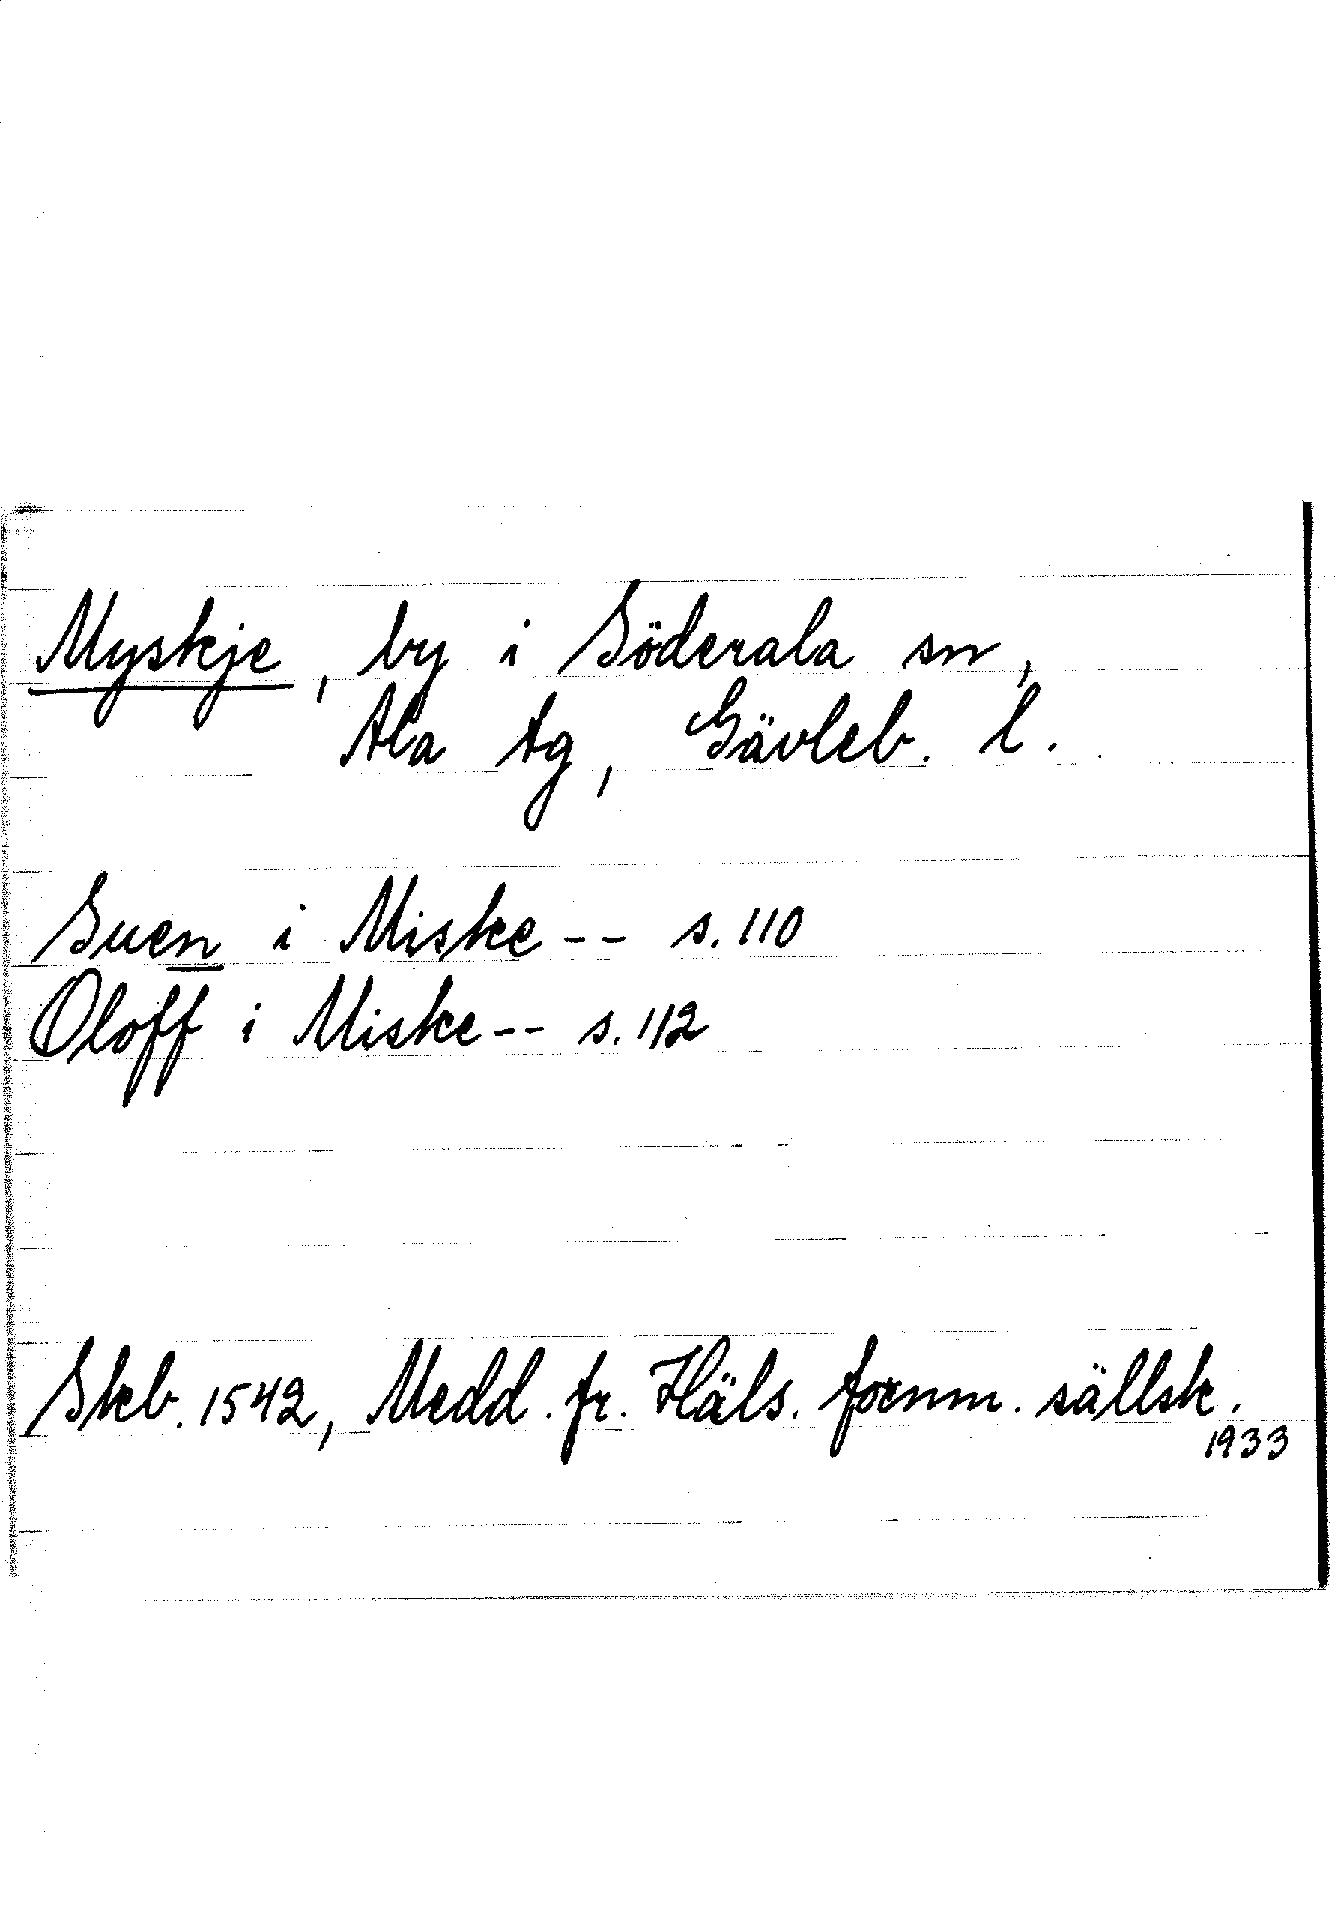 Myskje, by i Söderala sn,
Ala tg, Gävleb. l.
Suen i Miske -- s. 110
Oloff i Miske -- s. 112
Skb. 1542, Medd. fr. Häls. fornm. sällsk.
1933